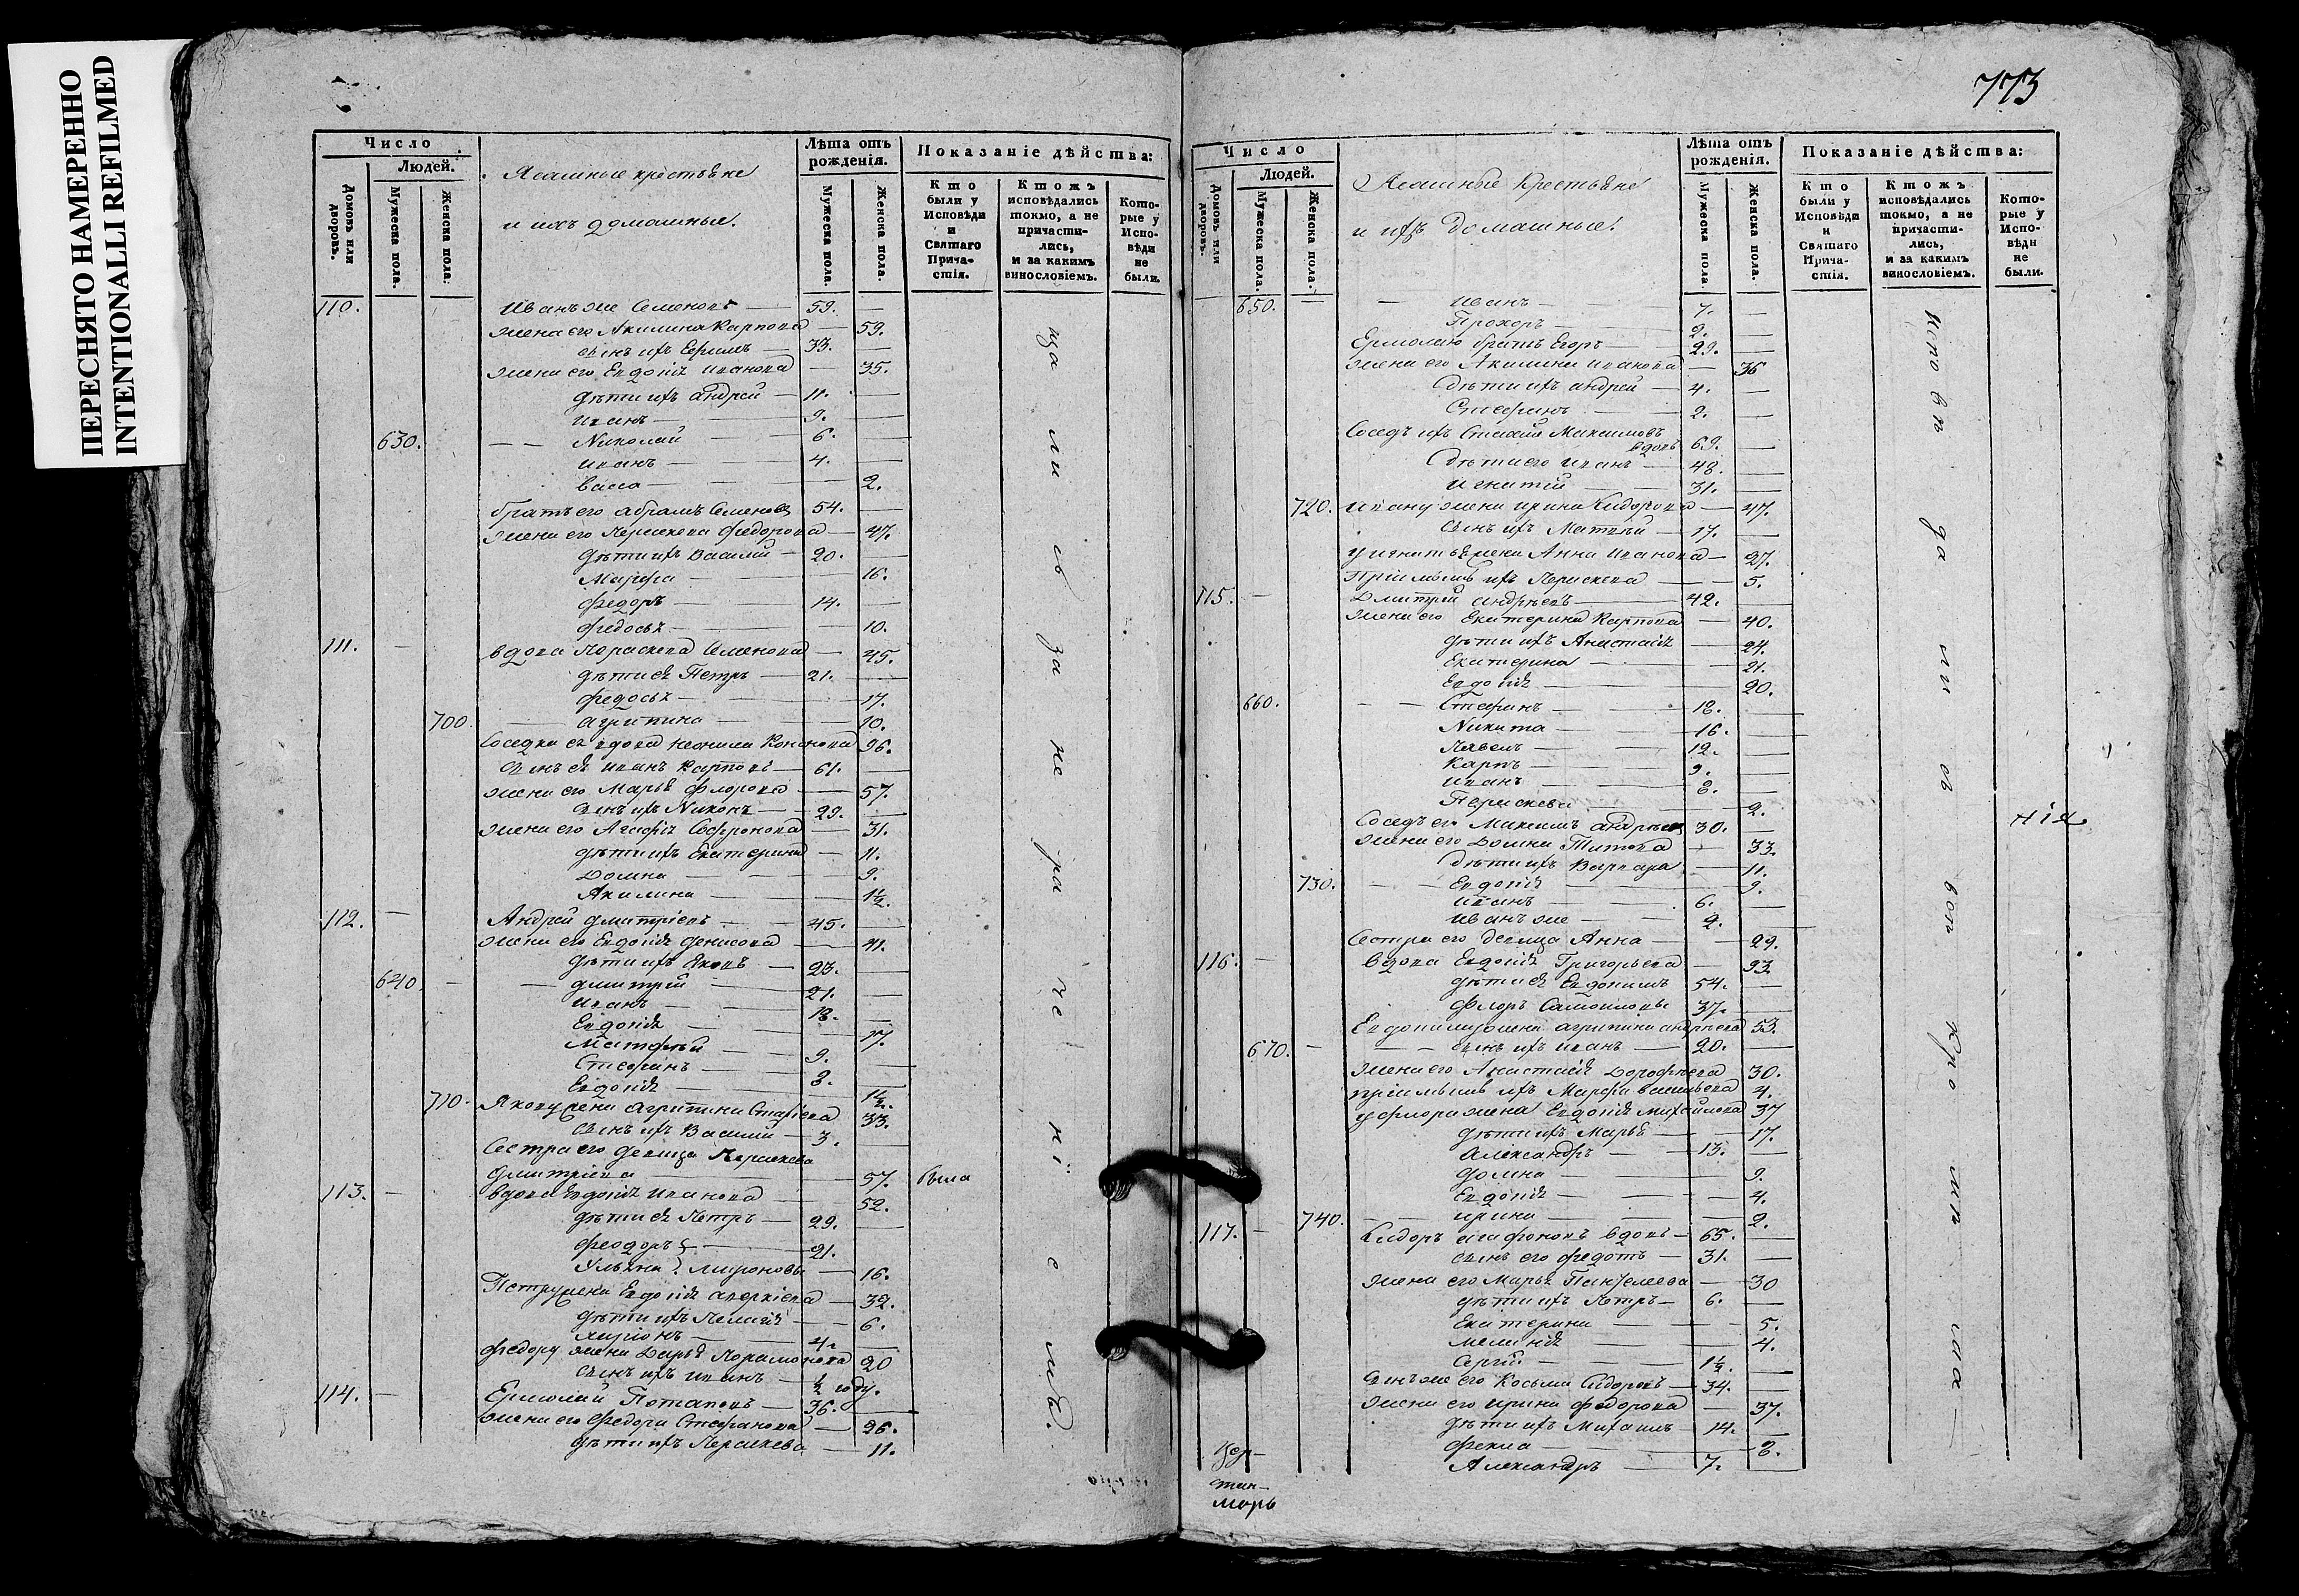 ПЕРЕСНЯТО НАМЕРЕННО
INTENTIONALLI REFILMED
Число
Людей.
Домовъ или дворовъ.
Мужеска пола.
Женска пола.
Ясашные крестьяне
и ихъ домашные.
Лѣта отъ рожденія.
Мужеска пола.
Женска пола.
Показаніе дѣйства:
Кто были у Исповѣди и Святаго Прича-стія.
Ктожъ исповѣдались токмо, а не причасти-лись, и за какимъ винословіемъ.
Кото-рые у Испо-вѣди не были.
110. Иванъ же Семеновъ — 59. —
жена его Акилина Карпова — 59.
сынъ ихъ Ефимъ — 33. —
жена его Евдокія Иванова — 35.
дѣти ихъ Андрей — 11. —
Иванъ — 9. —
630. — — Николай — 6. —
Иванъ — 4. —
Васса — — 2.
братъ его Абрамъ Семеновъ 54. —
жена его Параскева Федорова — 47.
дѣти ихъ Василій — 20. —
Марфа — — 16.
Федоръ — 14. —
Федосья — — 10.
111. — вдова Параскева Семенова — 45.
дѣти ея Петръ — 21. —
Федосья — — 17.
700. — Агрипина — — 10.
Соседка ея вдова Неонила Кононова 96.
сынъ ея Иванъ Карповъ — 61. —
жена его Марья Флорова — 57.
сынъ ихъ Никонъ — 29. —
жена его Агафія Софронова — 31.
дѣти ихъ Екатерина — 11.
Домна — — 9.
Акилина — — 1½.
112. — Андрей Дмитріевъ — 45. —
жена его Евдокія Денисова — 41.
дѣти ихъ Яковъ — 23. —
640. — — Дмитрій — 21. —
Иванъ — 18. —
Евдокія — — 17.
Матфей — 9. —
Стефанъ — 3. —
Евдокія — — 1½.
710. Якову жена Агрипина 33.
сынъ ихъ Василій — 3. —
Сестра его девица Параскева
Дмитріева — 57. была
113. — вдова Евдокія Иванова — 52.
дѣти ея Петръ — 29. —
Феодоръ — 21.
Ульяна Мироновы — 16.
Петру жена Евдокія — 32.
дѣти ихъ Пелагія — 6.
— 4. —
Федору жена Дарья Парамонова 20
сынъ ихъ Иванъ — ½ году.
114. — Ермолай Потаповъ — 36. —
жена его Федора Стефанова — 26.
дѣти ихъ Параскева — 11.
за не ра че ні е мъ.
773
Число
Людей.
Домовъ или дворовъ.
Мужеска пола.
Женска пола.
Ясашные Крестьяне
и ихъ домашные.
Лѣта отъ рожденія.
Мужеска пола.
Женска пола.
Показаніе дѣйства:
Кто были у Исповѣди и Святаго Прича-стія.
Ктожъ исповѣдались токмо, а не причасти-лись, и за какимъ винословіемъ.
Кото-рые у Испо-вѣди не были.
650. — — Иванъ — 7. —
Прохоръ — 2. —
Ермолаю братъ Егоръ — 29. —
жена его Акилина Иванова — 36
дѣти ихъ Андрей — 4. —
Стефанъ — 2. —
Соседъ ихъ Максимовъ
вдовъ 69. —
дѣти его Иванъ — 48. —
Игнатій — 31. —
720. Ивану жена Ирина Сидорова — 47.
сынъ ихъ Матвѣй — 17. —
у Игнатья жена Анна Иванова — 27.
Пріимышъ ихъ Параскева — — 5.
115. — Дмитрій Андрѣевъ — 42. —
жена его Екатерина Карпова — 40.
дѣти ихъ Анастасія — 24.
Екатерина — — 21.
Евдокія — — 20.
660. — — Стефанъ — 18. —
Никита — 16. —
Павелъ — 12. —
Карпъ — 9. —
Иванъ — 8. —
Параскева — 2.
Соседъ его Максимъ Андрѣевъ 30. —
жена его Домна Титова — 33.
дѣти ихъ Варвара — 11.
730. — — Евдокія — — 9.
Иванъ — 6. —
Иванъ же — 2. —
Сестра его девица Анна — 29.
116. — вдова Евдокія Григорьева — 93
дѣти ея Евдокимъ 54. —
Флоръ Самойловы 37. —
Евдокиму жена Агрипина Андрѣева 53.
670. — — сынъ ихъ Иванъ — 20. —
жена его Анастасія Дорофѣева 30.
пріимышъ ихъ Марфа Васильева 4.
у Флора жена Евдокія Михайлова 37
дѣти ихъ Марья — 17.
Александръ — 13. —
Домна — — 9.
Евдокія — — 4.
740. — — Ирина — — 2.
117. — Сидоръ Агафоновъ вдовъ — 65. —
сынъ его Федотъ — 31. —
жена его Марья Пантелеева — 30
дѣти ихъ Петръ — 6. —
Екатерина — — 5.
Меланія — — 4.
Сергій — 1½. —
сынъ же его Косьма Сидоровъ — 34. —
жена его Ирина Федорова — 37.
дѣти ихъ Михаилъ — 14. —
Фекла — — 8.
Александръ — 7. —
нія